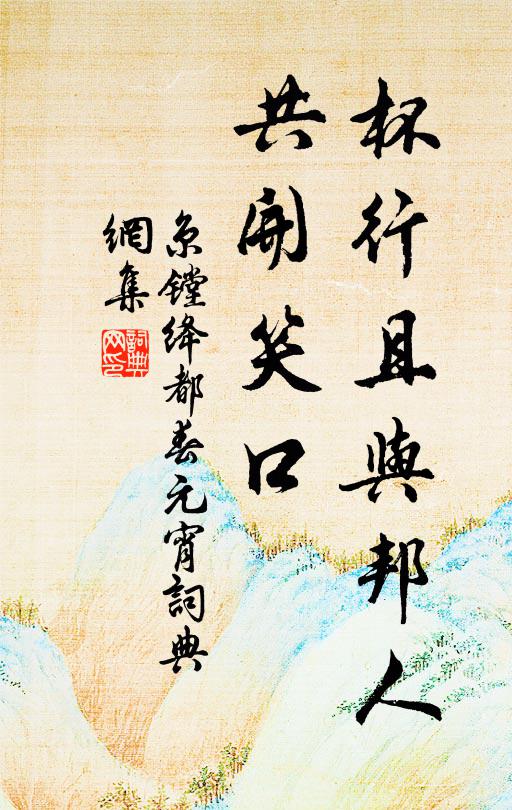 杯行且與邦人
共開笑口
京鏜绛都春元宵詞典
網集
詞典
网印